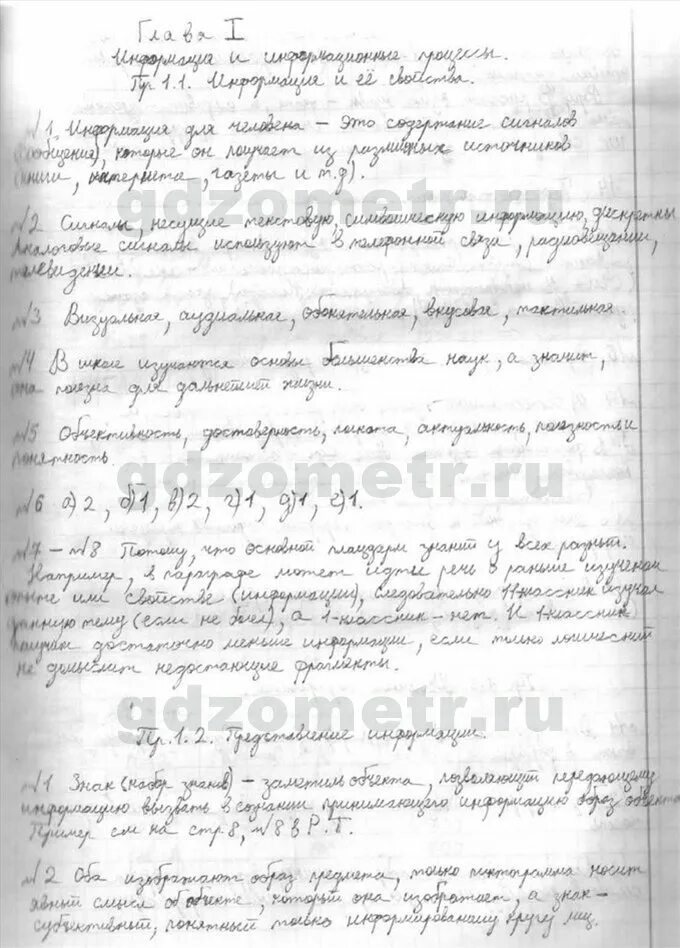 Глава I
Информация и информационные процессы.
Пр 1.1. Информация и её свойства.
№1. Информация для человека – это содержание сигналов
(сообщения), которые он получает из различных источников
(книги, интернета, газеты и т.д).
gdzometr.ru
№2 Сигналы, несущие текстовую, символическую информацию, дискретны
Аналоговые сигналы используют в телефонной связи, радиовещании,
телевидении.
№3 Визуальная, аудиальная, обонятельная, вкусовая, тактильная.
№4 В школе изучаются основы большинства наук, а значит,
она полезна для дальнейшей жизни.
№5 Объективность, достоверность, полнота, актуальность, полезность и
понятность.
gdzometr.ru
№6 а) 2, б) 1, в) 2, г) 1, д) 1, е) 1.
№7 – №8 Потому, что основной плацдарм знаний у всех разный.
Например, в параграфе может идти речь о раньше изученом
или свойстве (информации), следовательно 11-классник изучал
данную тему (если не болел), а 1-классник – нет. И 1-классник
получит достаточно меньше информации, если только логический
не домыслит недостающие фрагменты.
gdzometr.ru
Пр. 1.2. Представление информации.
№1 Знак (набор знаков) – заметитель объекта, позволяющий передающему
информацию вызвать в сознании принимающего информацию образ объекта
Пример см на стр 8, №8 в Р.Т.
№2 Оба изображают образ предмета, только пиктограмма носит
явный смысл об объекте, который она изображает, а знак –
субъективный, понятный только информированому кругу лиц.